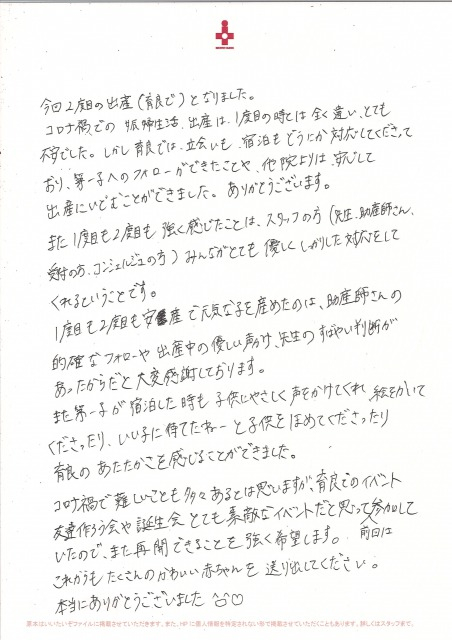 今回2度目の出産(育良で)となりました。
コロナ禍での妊婦生活、出産は、1度目の時とは全く違い、とても
不安でした。しかし育良では、立会いも、宿泊もどうにか対応してくださって
おり、第一子へのフォローができたことや、他院よりは安心して
出産にいどむことができました。ありがとうございます。
また1度目も2度目も強く感じたことは、スタッフの方(先生、助産師さん、
受付の方、コンシェルジュの方)みんながとても優しくしっかりした対応をして
くれるということです。
1度目も2度目も安産で元気な子を産めたのは、助産師さんの
的確なフォローや出産中の優しい声かけ、先生のすばやい判断が
あったからだと大変感謝しております。
また第一子が宿泊した時も子供にやさしく声をかけてくれ、絵をかいて
くださったり、いい子に待てたねーと子供をほめてくださったり
育良のあたたかさを感じることができました。
コロナ禍で難しいことも多々あるとは思いますが、育良でのイベント
友達作ろう会や誕生会とても素敵なイベントだと思って前回は参加して
いたので、また再開できることを強く希望します。
これからもたくさんのかわいい赤ちゃんを送り出してください。
本当にありがとうございました
原本はいいたいぞファイルに掲載させていただきます。また、HPに個人情報を特定されない形で掲載させていただくこともあります。詳しくはスタッフまで。